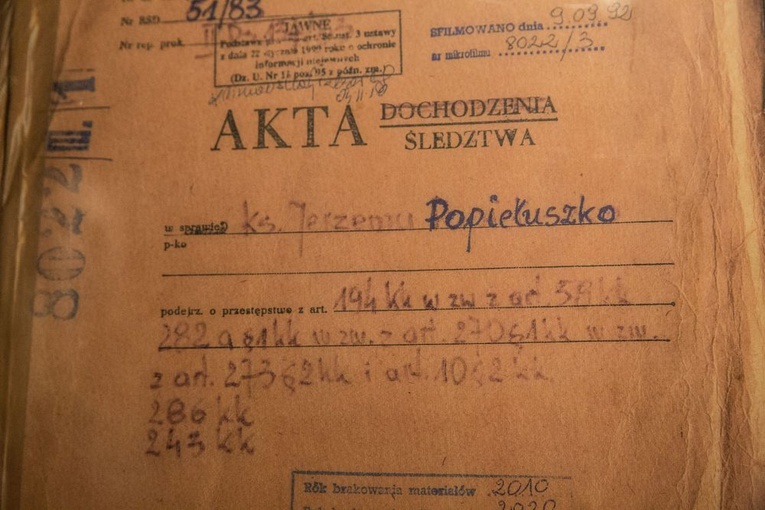 Nr RSD 51/83
Nr rep. prok.
JAWNE
Podstawa art. 86 ust. 3 ustawy
z dnia 22 stycznia 1999 roku o ochronie
informacji niejawnych
(Dz. U. Nr 11 poz. 95 z późn. zm.)
SFILMOWANO dnia 9.03.92
nr mikrofilmu 8022/3
8022
AKTA DOCHODZENIA
ŚLEDZTWA
w sprawie ks. Jerzemu Popiełuszko
p-ko
podejrz. o przestępstwo z art. 194 kk w zw z art. 58 kk
282a §1 kk w zw. z art. 270 §1 kk w zw.
z art. 273 §2 kk i art. 10 §2 kk.
286 kk
243 kk
Rok brakowania materiałów 2010
2020